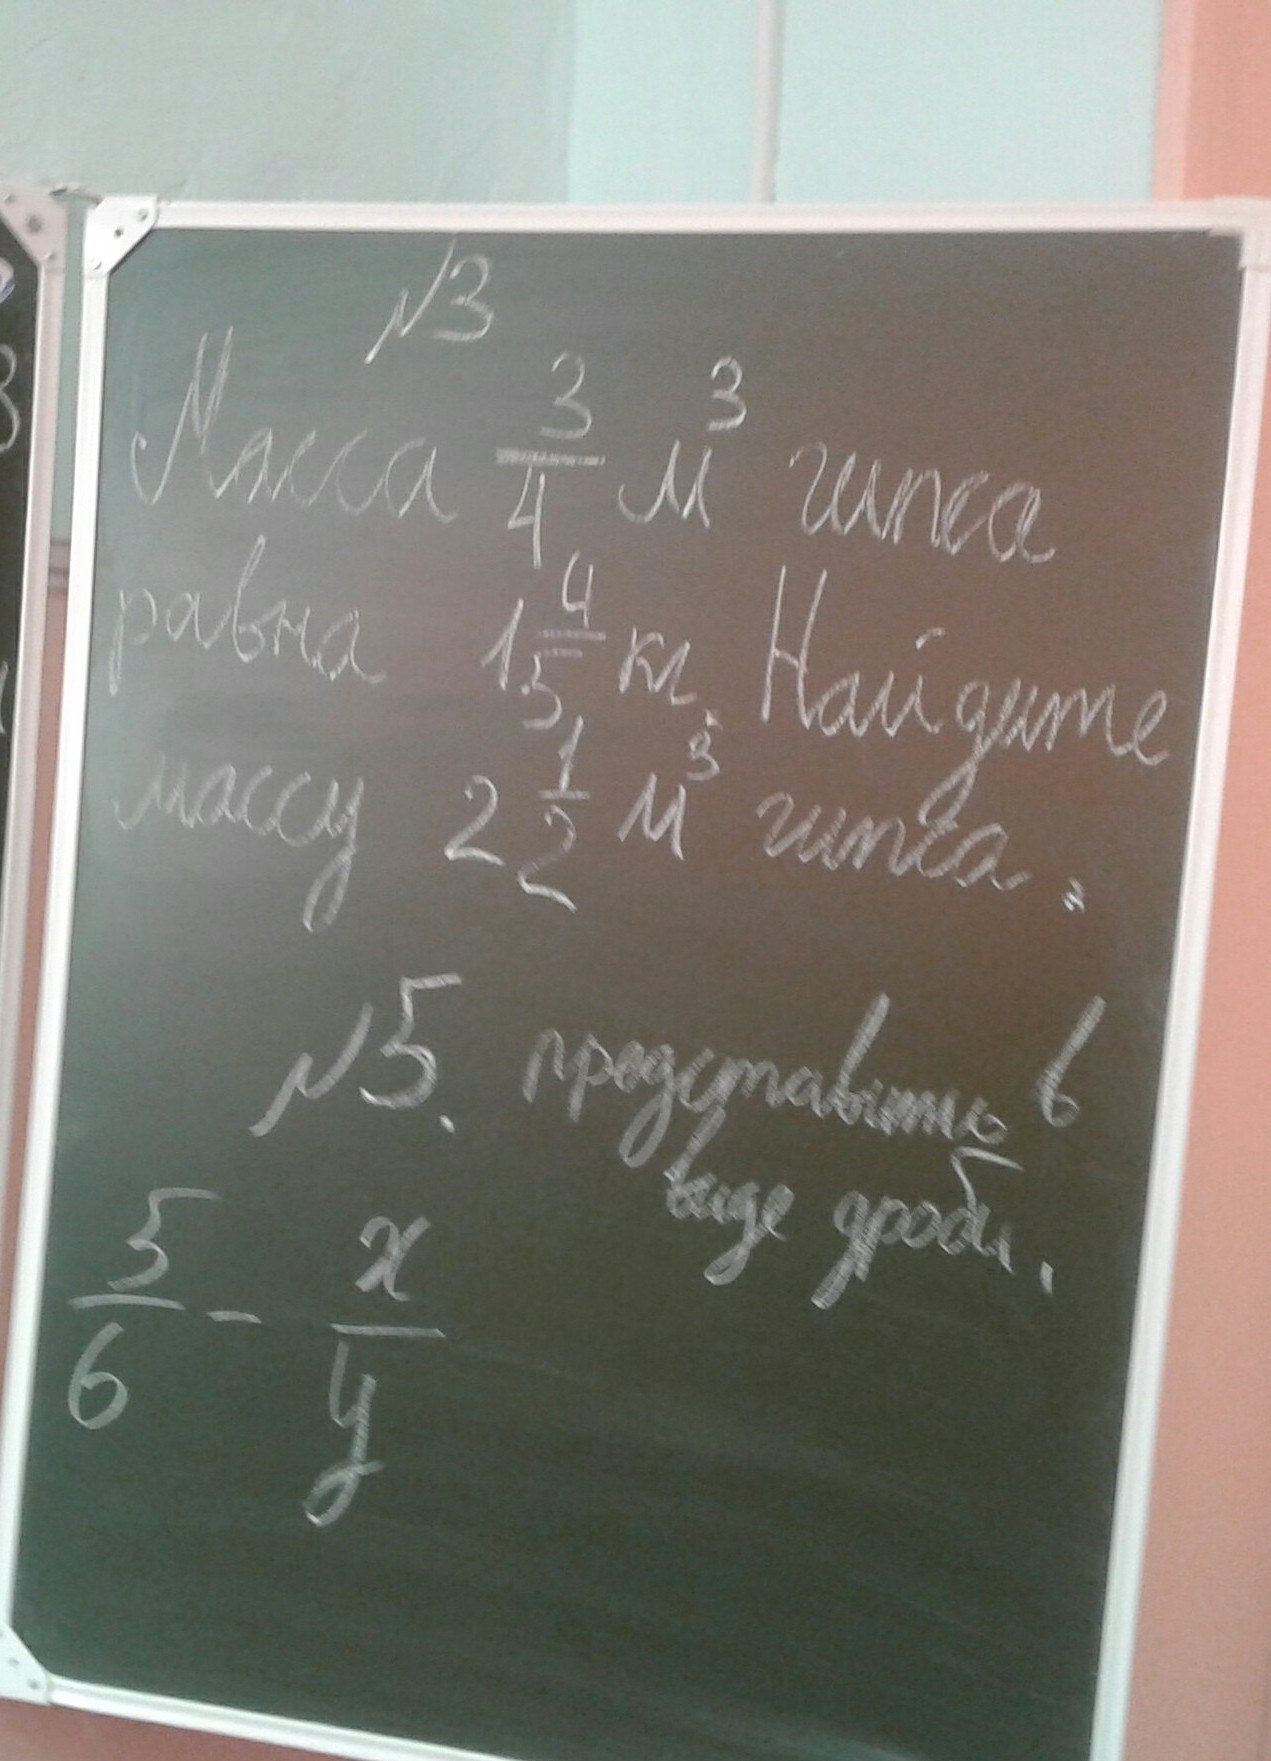 №3
Масса 3/4 м³ гипса
равна 1 4/5 кг. Найдите
массу 2 1/2 м³ гипса.
№5. представить в
виде дроби.
5/6 - x/y
3